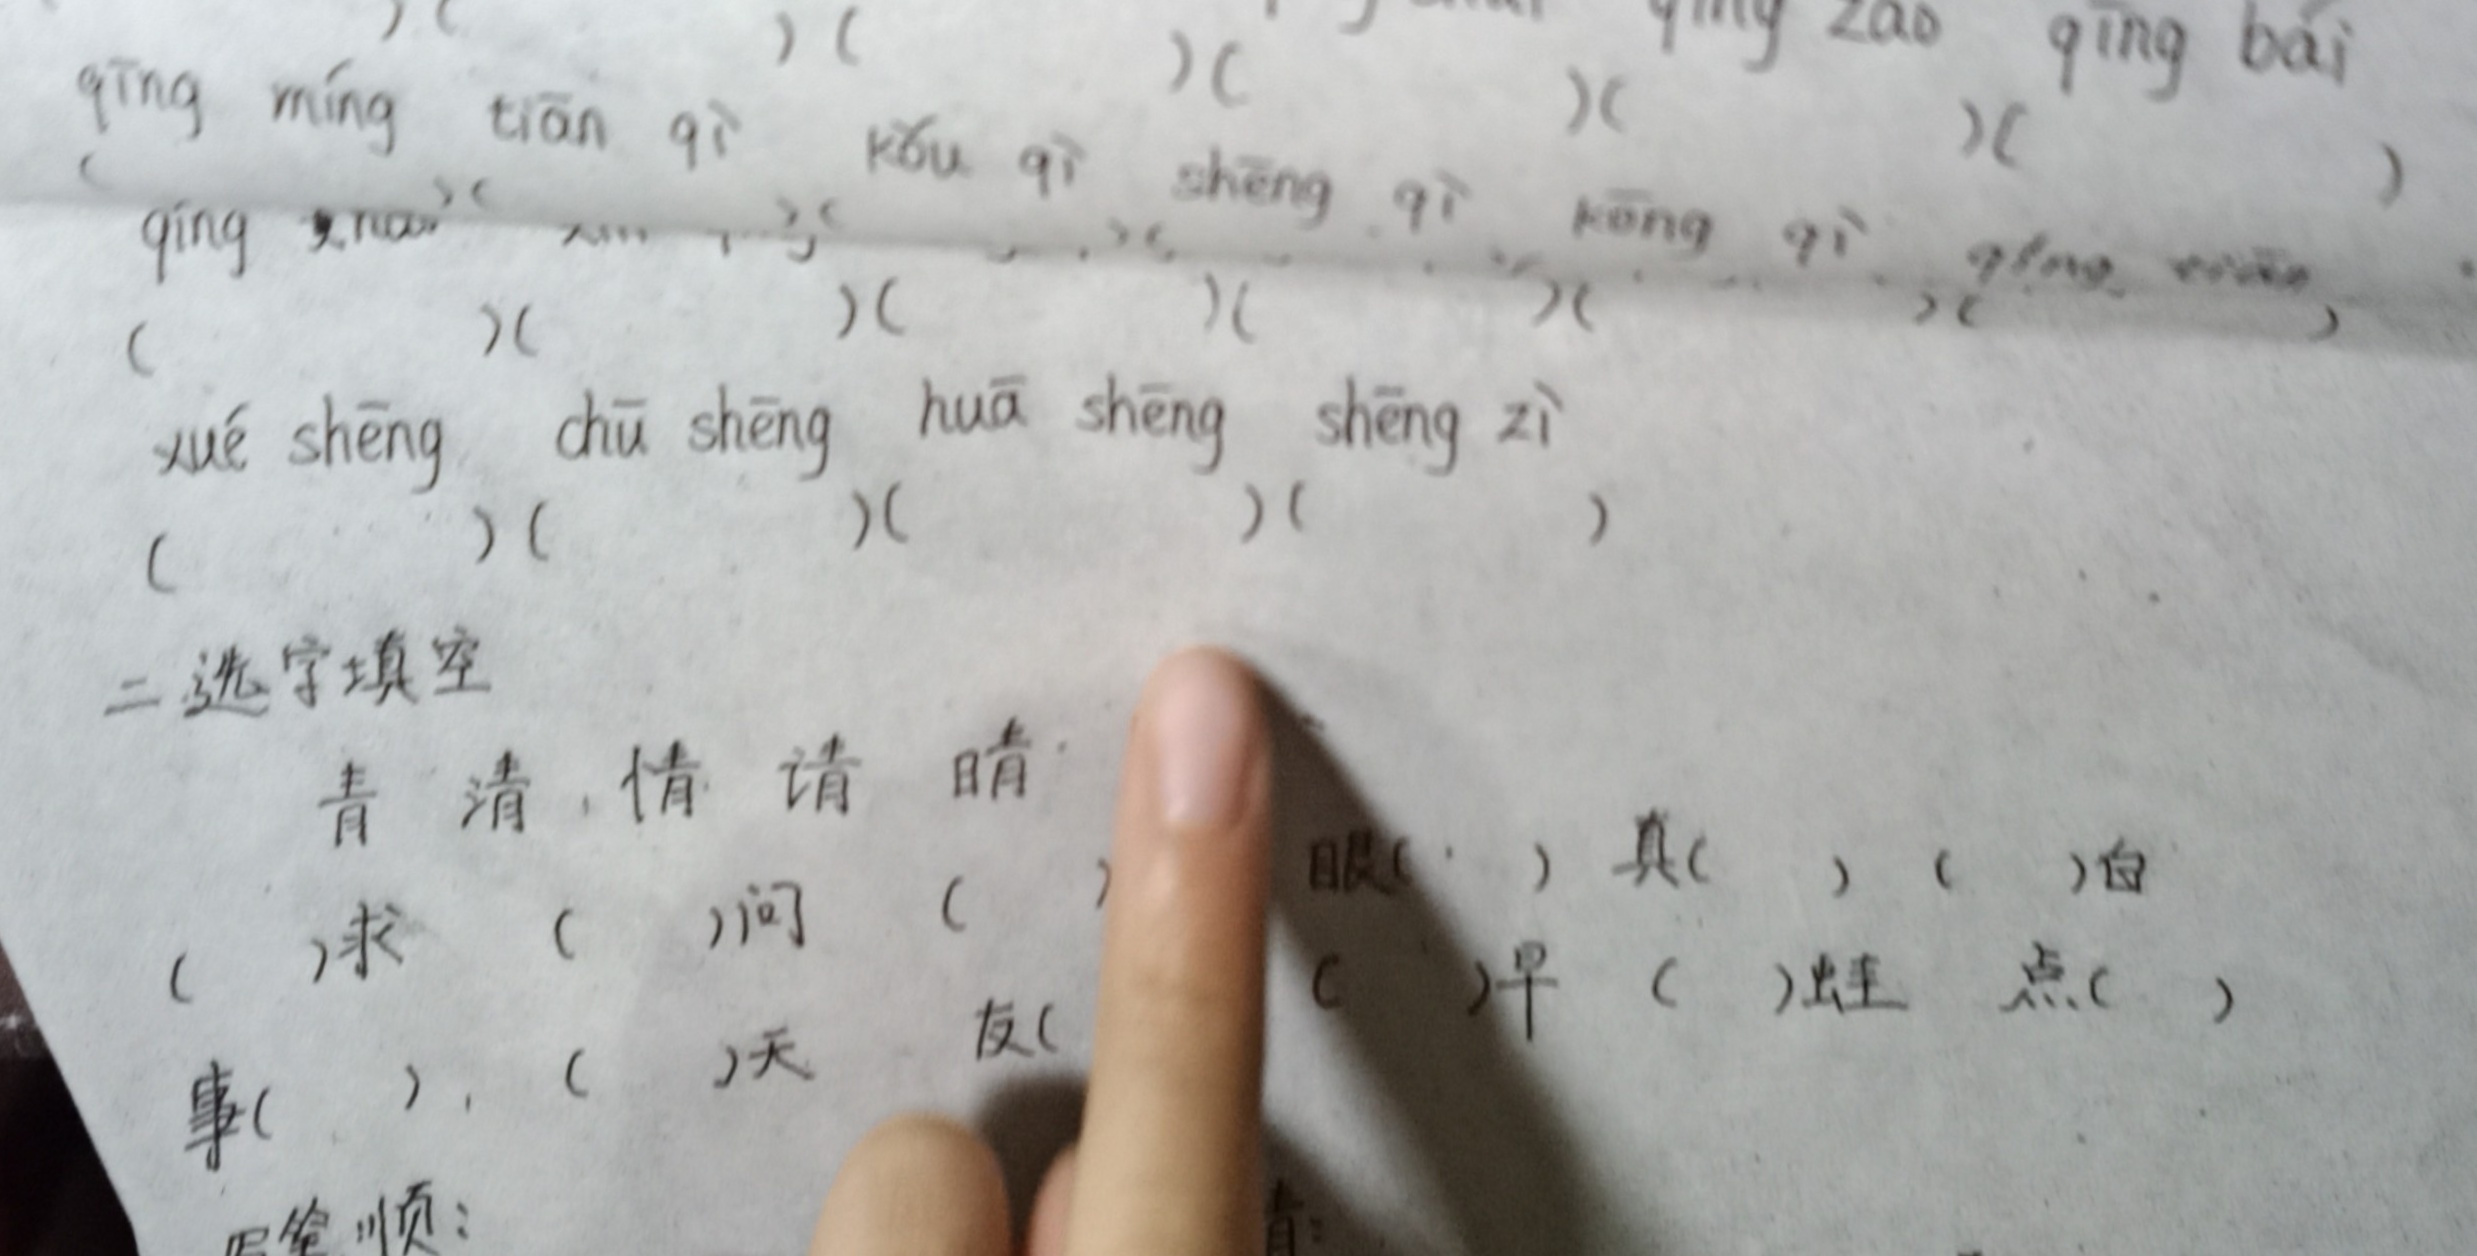 zǎo qīng bái
)( )( )( )( )( )
qīng míng tiān qì kǒu qì shēng qì kōng qì
( )( )( )( )( )( )
qíng
( )( )( )( )( )
xué shēng chū shēng huā shēng shēng zì
( )( )( )( )
二选字填空
青 清 情 请 晴
( )求 ( )问 ( ) 眼( ) 真( ) ( )白
事( ) ( )天 友( ( )早 ( )蛙 点( )
笔顺: